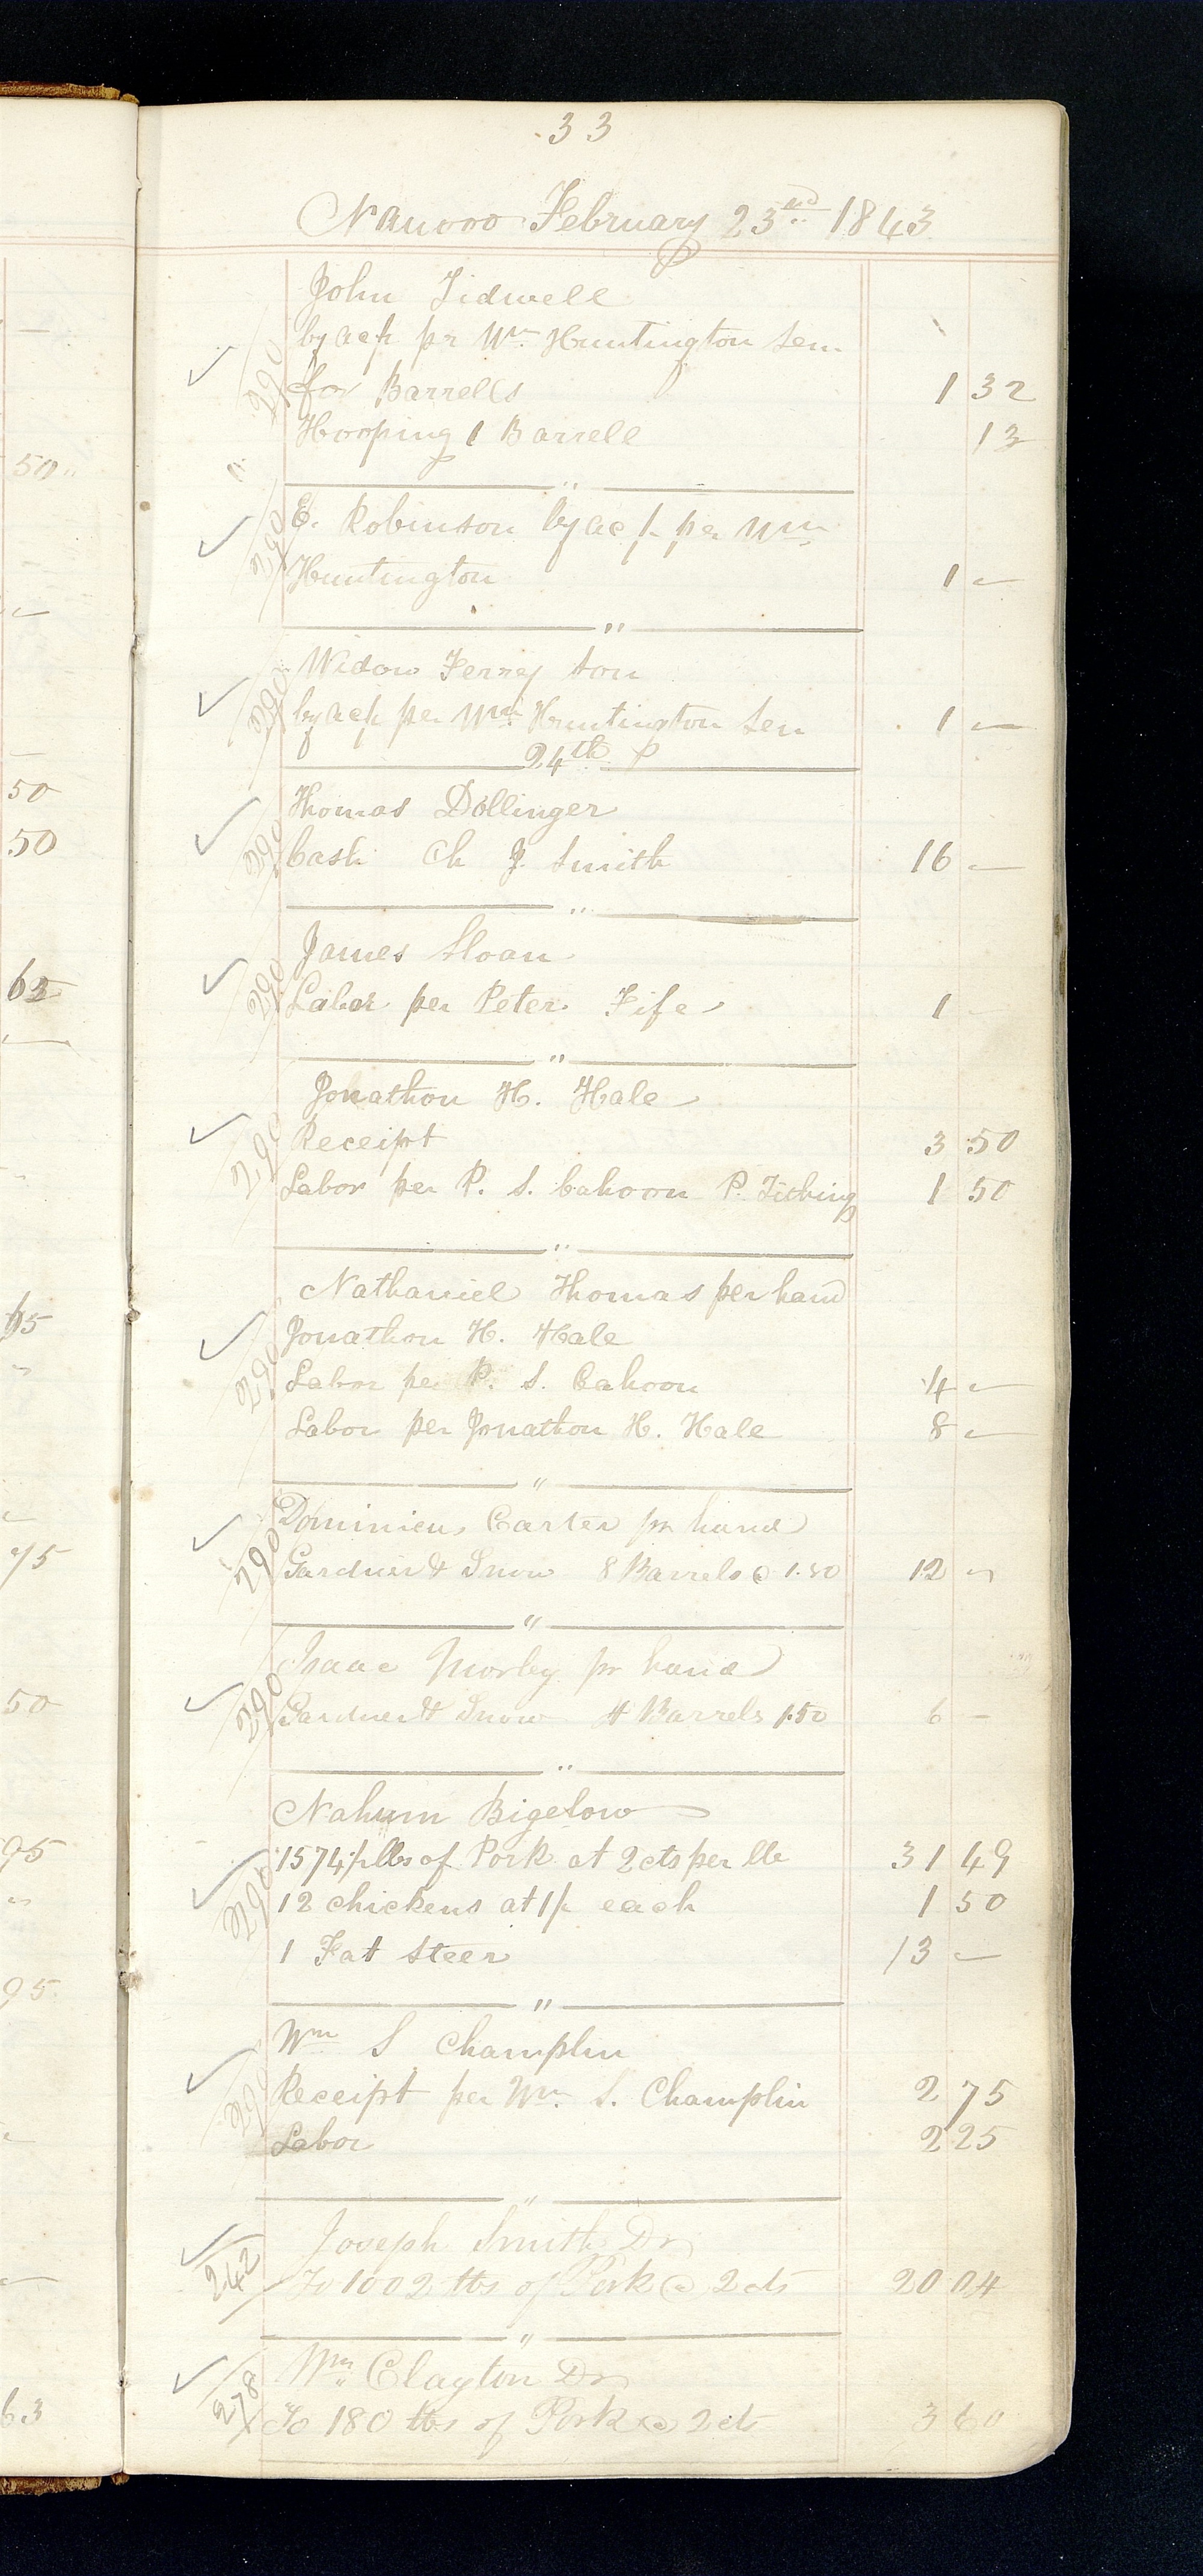 33
Nauvoo February 23rd 1843
John Tidwell
by acp pr Wm Huntington Sen
for Barrells 1 32
Hooping 1 Barrell 13
290
"
E. Robinson by acp per Wm
Huntington 1 —
290
"
Widow Ferrey ton
by acp per Wm Huntington Sen 1 —
290
24th
Thomas Dollinger
Cash Ch J. Smith 16 —
290
"
James Sloan
Labor per Peter Fife 1 —
290
"
Jonathon H. Hale
Receipt 3 50
Labor per P. S. Cahoon P. Tithing 1 50
290
"
Nathaniel Thomas per hand
Jonathon H. Hale
Labor per P. S. Cahoon 4 —
Labor per Jonathon H. Hale 8 —
290
"
Dominicus Carter pr hand
Gardner & Snow 8 Barrels @ 1.50 12 —
290
"
Isaac Morley pr hand
Gardner & Snow 4 Barrels 1.50 6 —
290
"
Nahum Bigelow
1574½ lbs of Pork at 2 cts per lb 31 49
12 chickens at 1/- each 1 50
1 Fat Steer 13 —
290
"
Wm S Champlin
Receipt per Wm. S. Champlin 2 75
Labor 2 25
290
"
Joseph Smith Dr
To 1002 lbs of Pork @ 2 cts 20 04
242
"
Wm Clayton Dr
To 180 lbs of Pork @ 2 cts 3 60
278
50
50
50
63
65
75
50
95
95
63